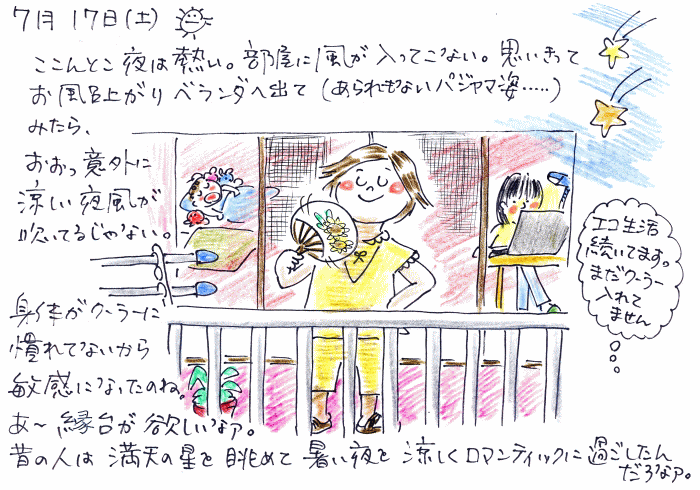 7月17日(土)
ここんとこ夜は熱い。部屋に風が入ってこない。思いきって
お風呂上がりベランダへ出て(あられもないパジャマ姿.....)
みたら、
おおっ意外に
涼しい夜風が
吹いてるじゃない。
身体がクーラーに
慣れてないから
敏感になったのね。
あ〜縁台が欲しいなァ。
昔の人は満天の星を眺めて暑い夜を涼しくロマンティックに過ごしたん
だろなァ。
エコ生活
続いてます。
まだクーラー
入れて
ません